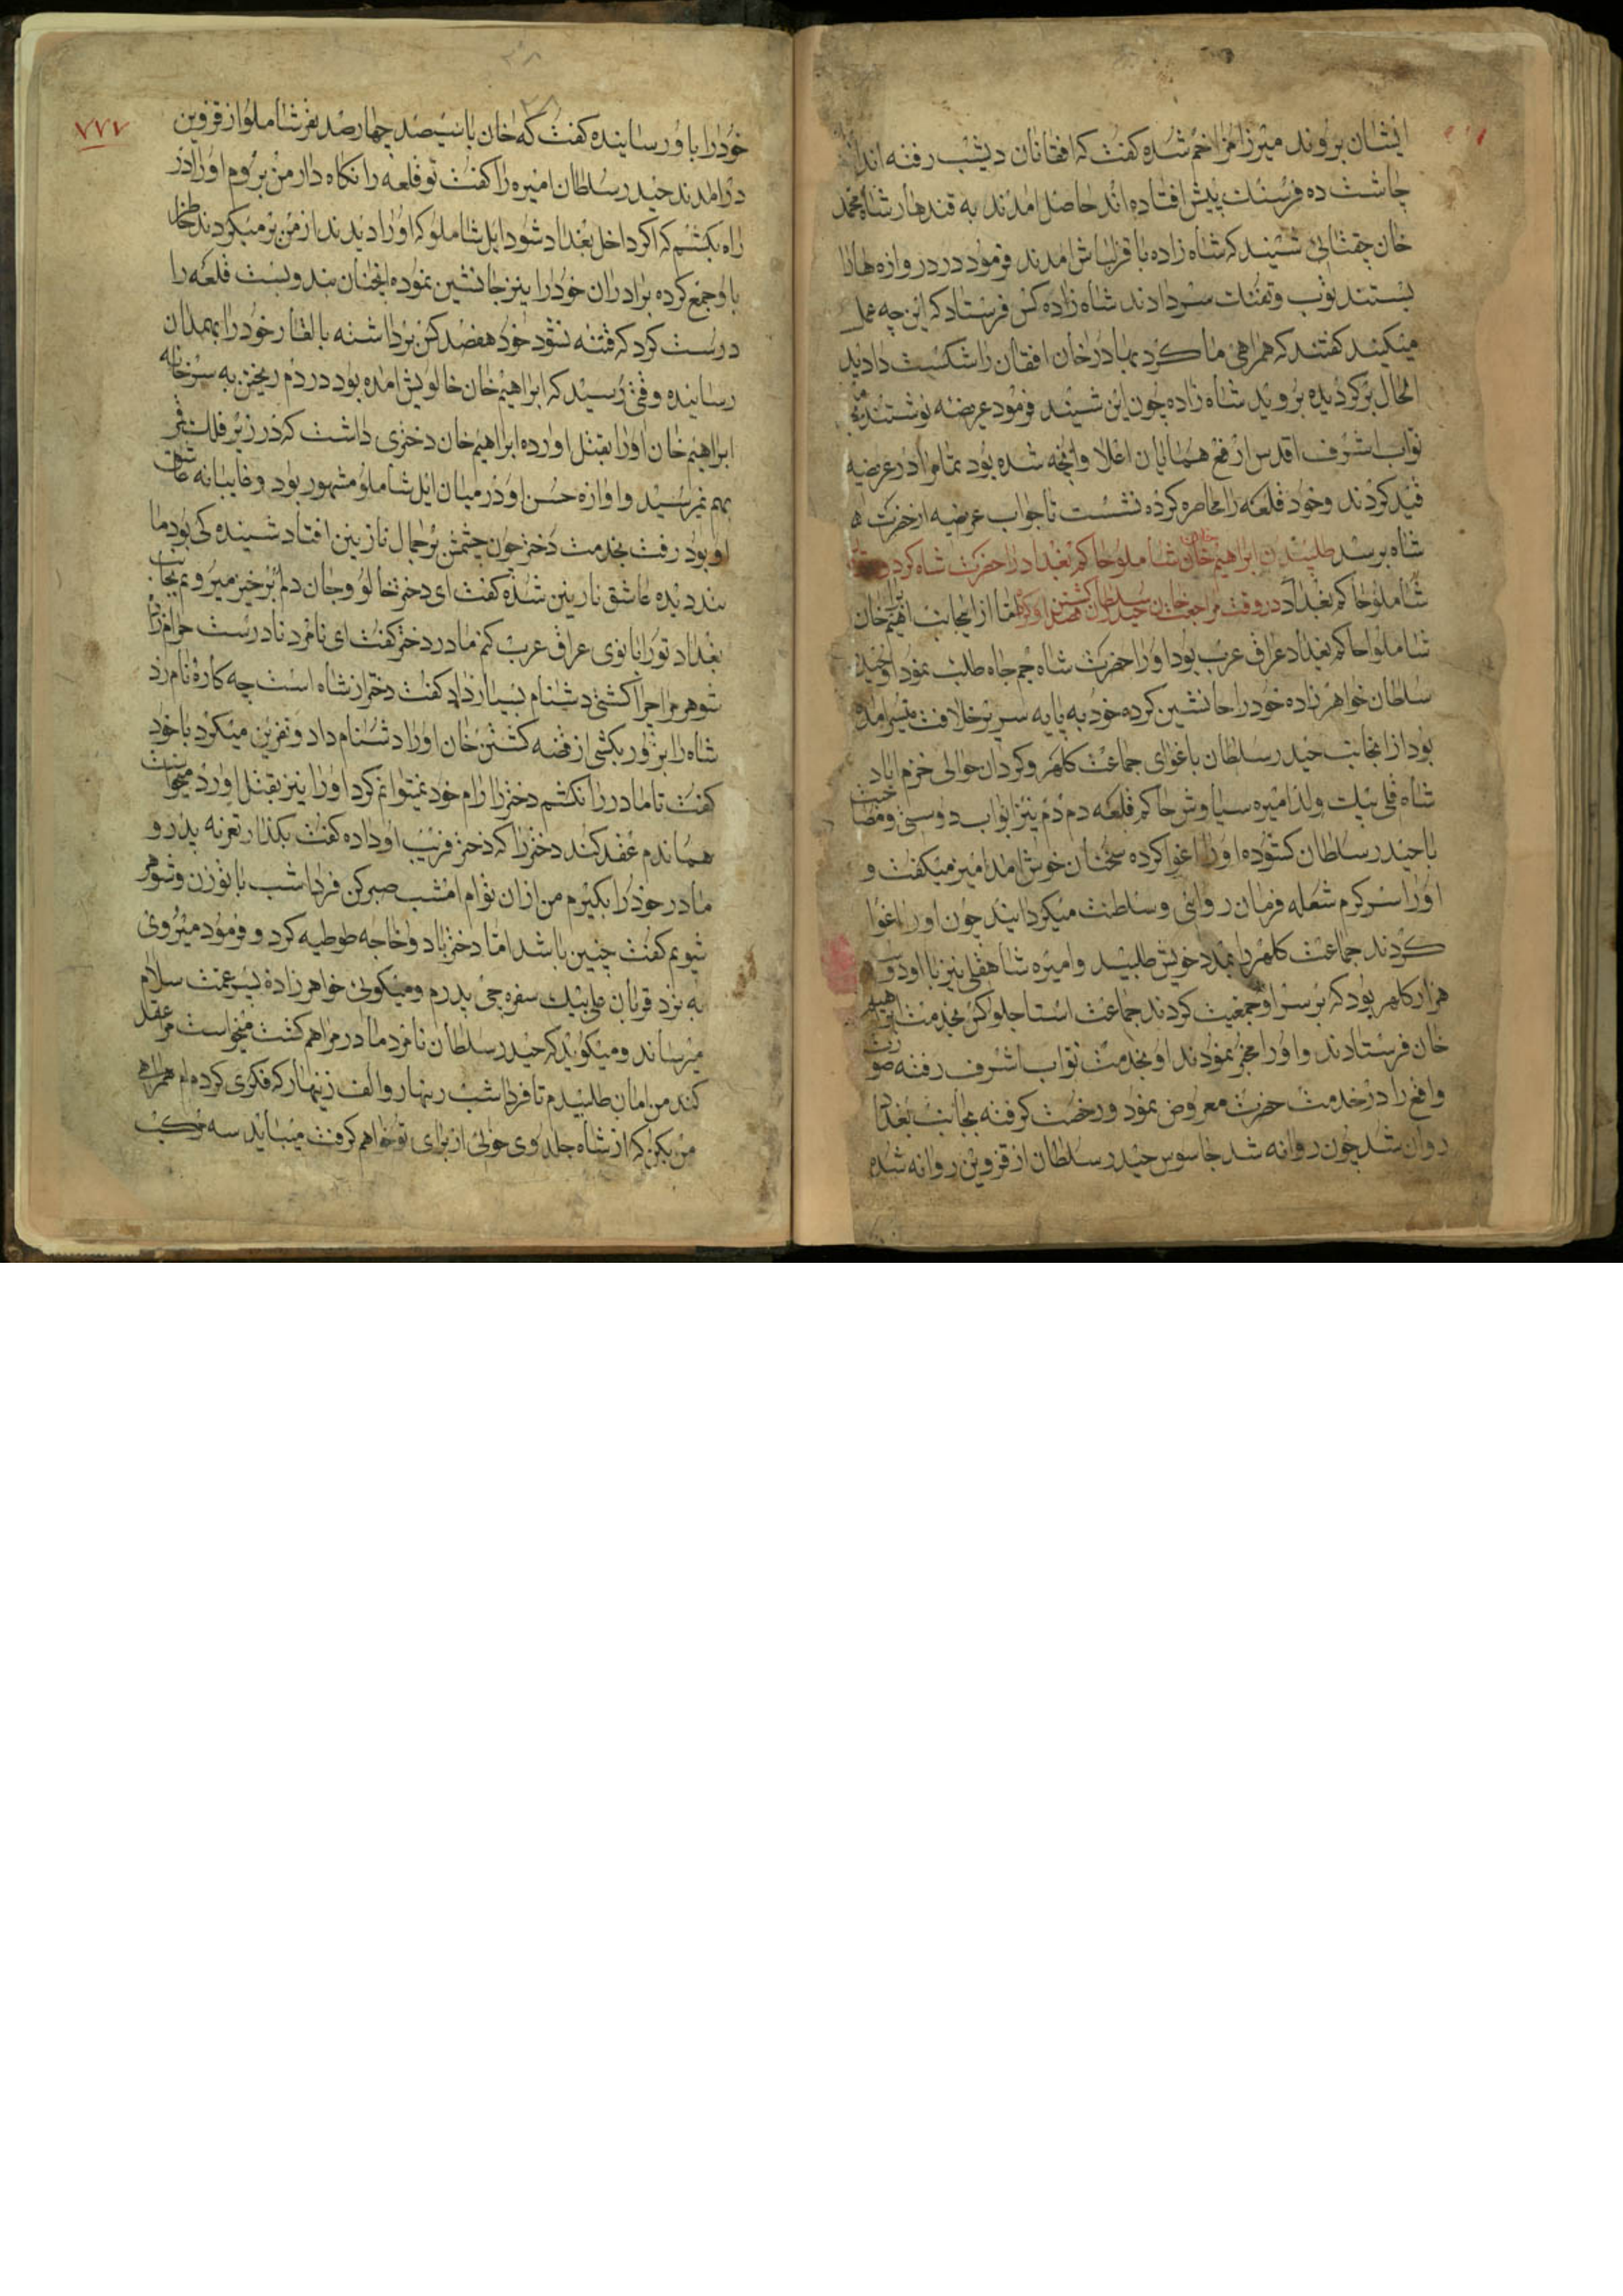 ایشان بروند میرزا شده کفت که افغانان دیشب رفته اند
چاشت ده فرسنك پیش افتاده اند حاصل امدند به قندهار شاه محمد
خان چغتائی شنید که شاه زاده با قزلباش امدند فرمود در دروازه هارا
بستند توپ و تفنك سر دادند شاه زاده کس فرستاد که این چه عمل
میکنید کفتند که همراهی ما کرد بهادر خان افغان را شکست دادید
الحال برکردیده بروید شاه زاده چون این شنید فرمود عریضه نوشتند
نواب اشرف اقدس ارفع همایان اعلا و انچه شده بود تمام را در عریضه
قید کردند و خود قلعه را محاصره کرده نشست تا جواب عریضه از حضرت
شاه برسد طلبیدن ابراهیم خان شاملو حاکم بغداد را حضرت شاه کردون
شاملو حاکم بغداد در وقت مراجعت خان حیدر سلطان کشتن اما از انجانب ابراهیم خان
شاملو حاکم بغداد عراق عرب بود او را حضرت شاه جم جاه طلب نمود او حیدر
سلطان خواهر زاده خود را جانشین کرده خود به پایه سریر خلافت مسیر امده
بود از انجانب حیدر سلطان باغوای جماعت کلهر و کردان حوالی خرم اباد
شاه قلی بیك ولد امیره سیاوش حاکم قلعه دم دم نیز ابواب دوستی و
با حیدر سلطان کشوده او را اغوا کرده سخنان خوش امد امیز میکفت و
او را سر کرم شعله فرمان روائی و سلطنت میکردانید چون او را اغوا
کردند جماعت کلهر را بمدد خویش طلبید و امیره شاهقلی نیز با او دو سه
هزار کلهر بود که بر سر او جمعیت کردند جماعت استاجلو کس بخدمت ابراهیم
خان فرستادند و او را مخبر نمودند او بخدمت نواب اشرف رفته صورت
واقع را در خدمت حضرت معروض نمود و رخصت کرفته بجانب بغداد
روان شد چون روانه شد جاسوس حیدر سلطان از قزوین روانه شده
۷۷۷
خود را باو رسانیده کفت که خان با سیصد چهار صد نفر شاملو از قزوین
در امدند حیدر سلطان امیره را کفت تو قلعه را نکاه دار من بروم او را در
راه بکشم که اکر داخل بغداد شود ایل شاملو که او را دیدند از من برمیکردند خاطر
باو جمع کرده برادران خود را نیز جانشین نموده انچنان بند و بست قلعه را
درست کرد که فتنه نشود خود هفصد کس برداشته بالغار خود را بهمدان
رسانیده وقتی رسید که ابراهیم خان خالویش امده بود در دم ریختن به سر خانه
ابراهیم خان او را بقتل اورده ابراهیم خان دختری داشت که در زیر فلك
بهم نمیرسید و اوازه حسن او در میان ایل شاملو مشهور بود و غایبانه عاشق
او بود رفت بخدمت دختر چون چشمش بر جمال نازنین افتاد شنیده کی بود ما
نند دیده عاشق نازنین شده کفت ای دختر خالو و جان دلم برخیز میرویم بجانب
بغداد تو را بانوی عراق عرب کنم مادر دختر کفت ای نامرد نادرست حرام زاده
شوهر مرا چرا کشتی دشنام بسیار داد کفت دختر از شاه است چه کاره نام زد
شاه را بزور بکشی از قضه کشتن خان او را دشنام داد و نفرین میکرد با خود
کفت تا مادر را نکشم دختر را رام خود نمیتوانم کرد او را نیز بقتل اورد میخواست
هماندم عقد کند دختر را که دختر فریب او داده کفت بکذار تعزیه پدر و
مادر خود را بکیرم من از ان توام امشب صبر کن فردا شب با تو زن و شوهر
شویم کفت چنین باشد اما دختر باد و خاجه طوطیه کرد و فرمود میروی
به نزد قربان علی بیك سفره چی پدرم و میکوئی خواهر زاده بیرعمت سلام
میرساند و میکوید که حیدر سلطان نامرد مادر مرا هم کشت میخواست مرا عقد
کند من امان طلبیدم تا فردا شب زینهار و الف زینهار که فکری کرده ام همراهی
من بکن که از شاه جلدوی خوبی از برای تو خواهم کرفت میباید سه مرکب